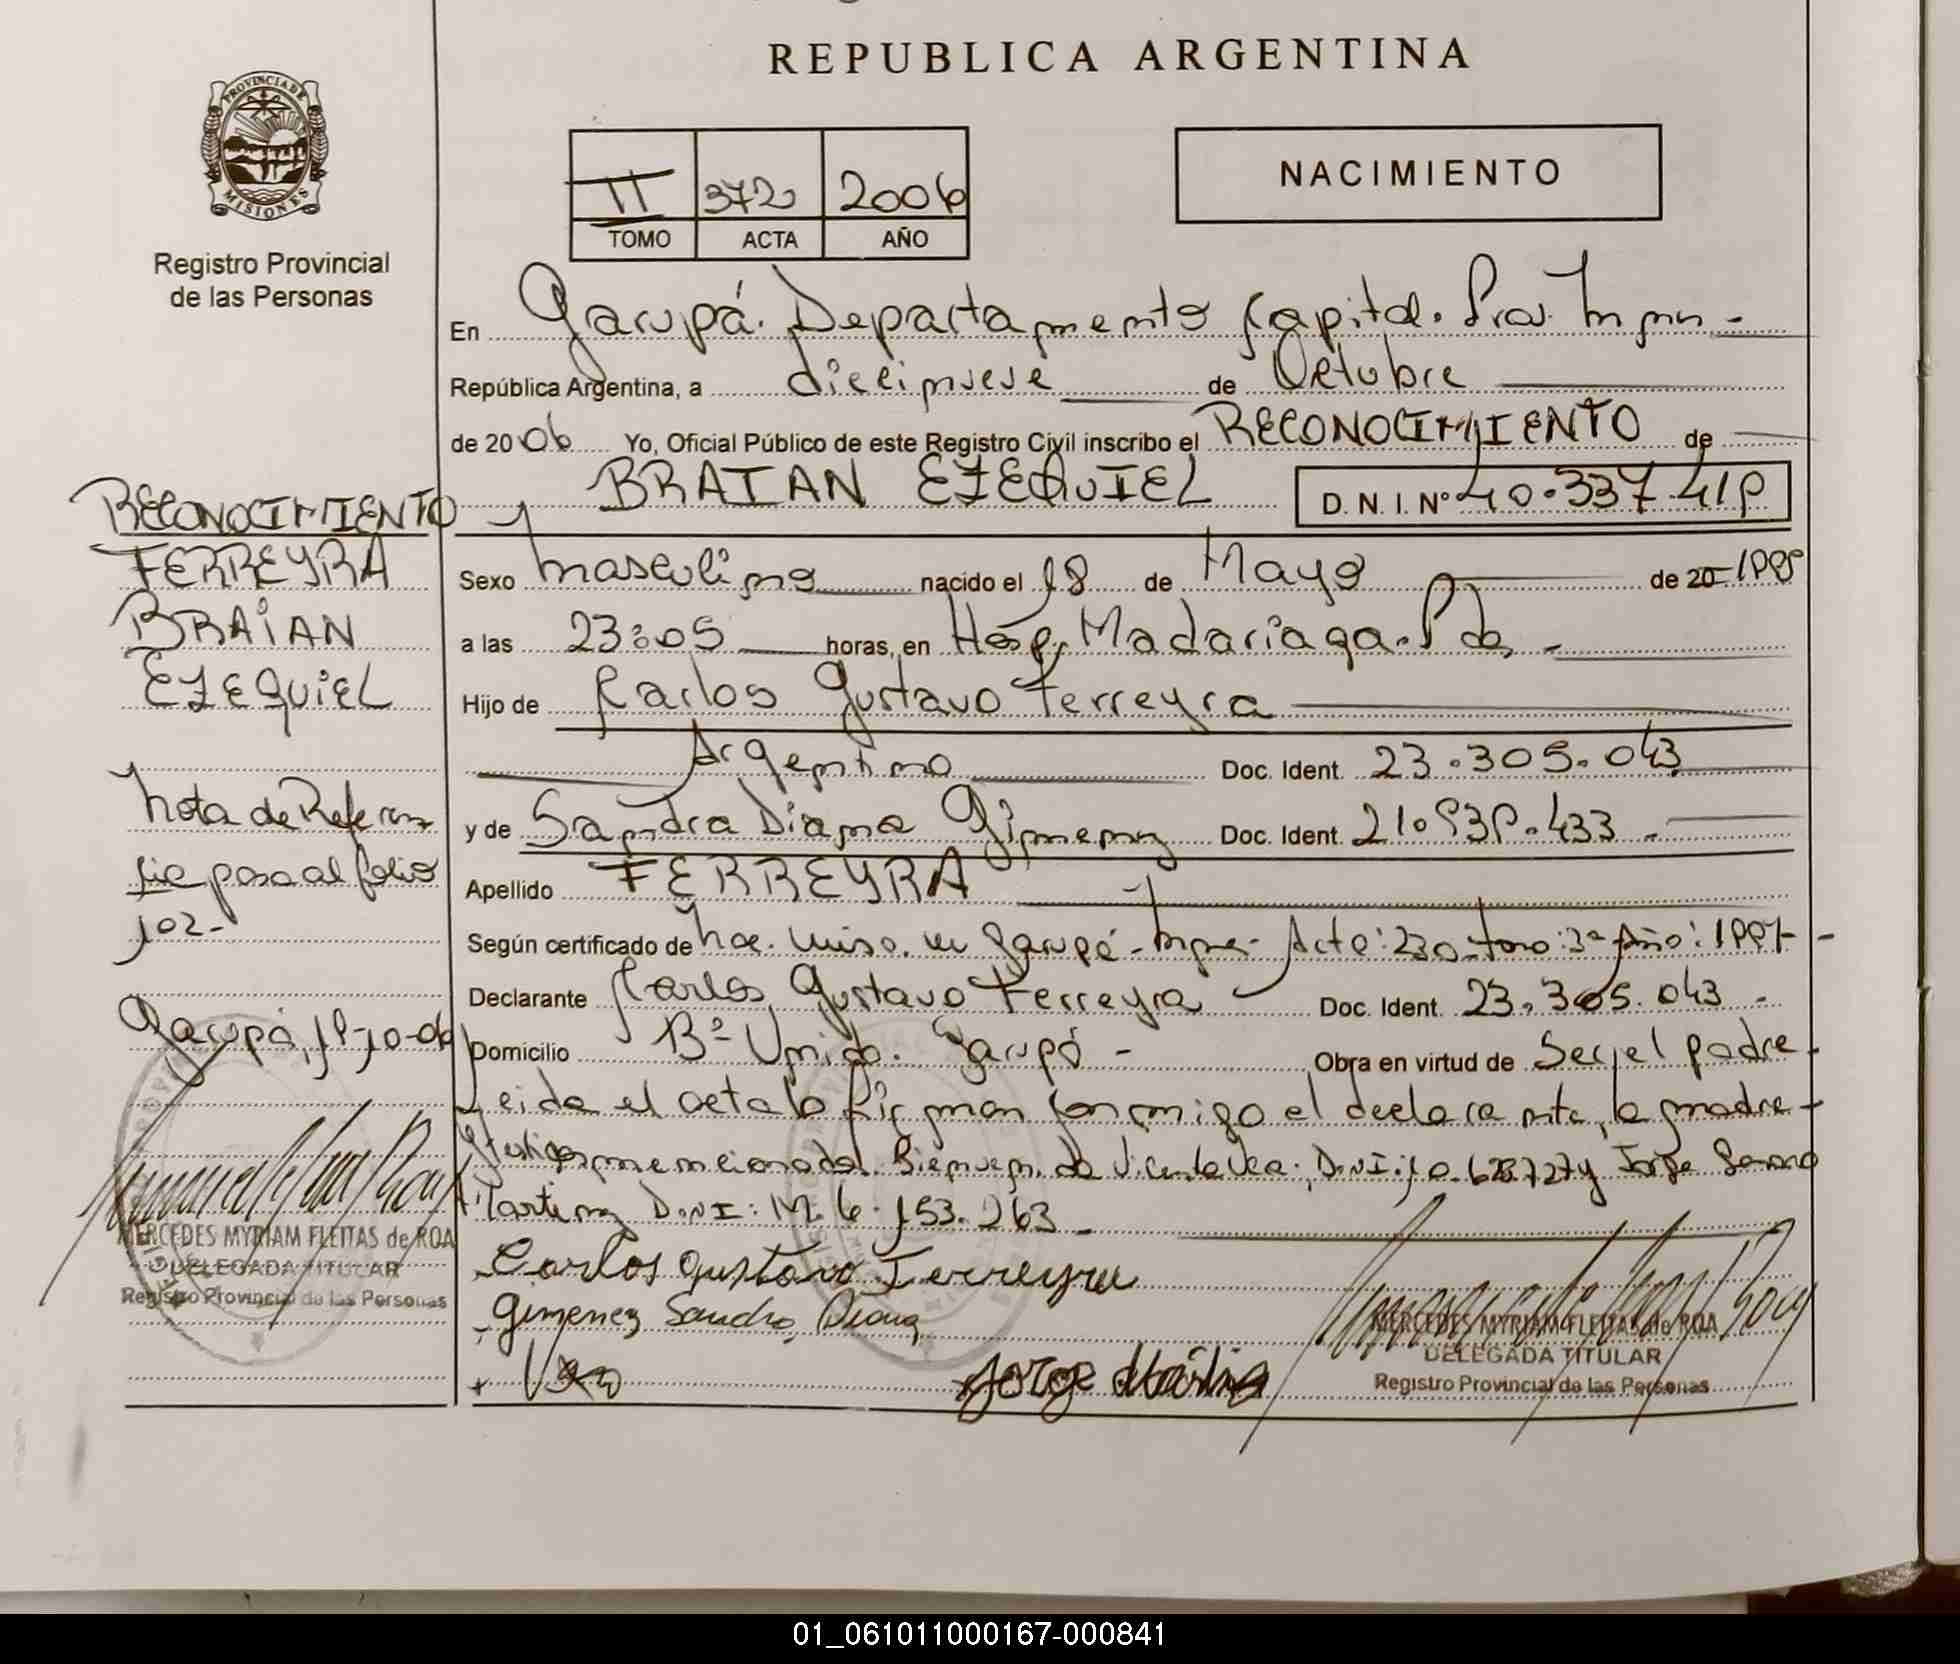 REPUBLICA ARGENTINA
PROVINCIA DE
MISIONES
Registro Provincial
de las Personas
II 372 2006
TOMO ACTA AÑO
NACIMIENTO
En Garupá. Departamento Capital.
República Argentina, a diecinueve de Octubre
de 2006 Yo, Oficial Público de este Registro Civil inscribo el RECONOCIMIENTO de
BRAIAN EZEQUIEL D. N. I. Nº 40.337.419
Sexo Masculino nacido el 18 de Mayo de 20
a las 23:05 horas, en Hosp. Madariaga. Pdas -
Hijo de Carlos Gustavo Ferreyra
Argentino Doc. Ident. 23.305.043
y de Sandra Diana Gimenez Doc. Ident. 21.939.433 -
Apellido FERREYRA
Según certificado de Garupá - Acta: 230 Tomo: 3º Año: 1997 -
Declarante Carlos Gustavo Ferreyra Doc. Ident. 23.305.043 -
Domicilio Bº Unido. Garupá - Obra en virtud de Ser el padre -
Leida el acta la firman conmigo el declarante, la madre -
y testigos mencionados Jorge
Martinez D.N.I: M. 6.153.263 -
Carlos Gustavo Ferreyra
Gimenez Sandra Diana
Jorge Martinez
MERCEDES MYRIAM FLEITAS de ROA
DELEGADA TITULAR
Registro Provincial de las Personas
RECONOCIMIENTO
FERREYRA
BRAIAN
EZEQUIEL
Nota de Referen
cia pasa al folio
102-
Garupá, 19-10-06
MERCEDES MYRIAM FLEITAS de ROA
DELEGADA TITULAR
Registro Provincial de las Personas
01_061011000167-000841